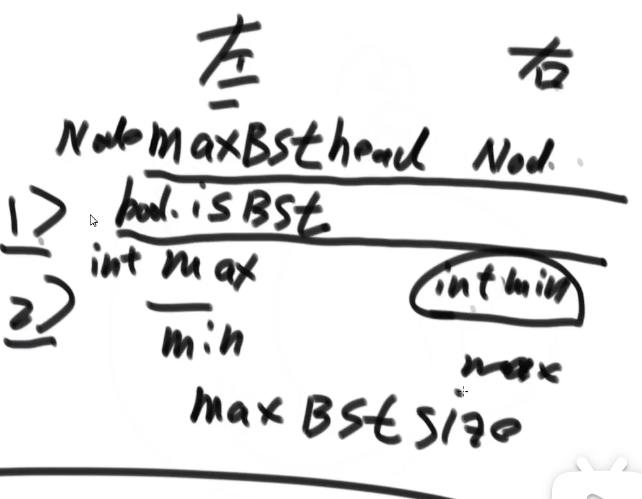 左 右
Node maxBSthead Nod.
1> bool. isBSt
int max int min
2>
min max
maxBStsize